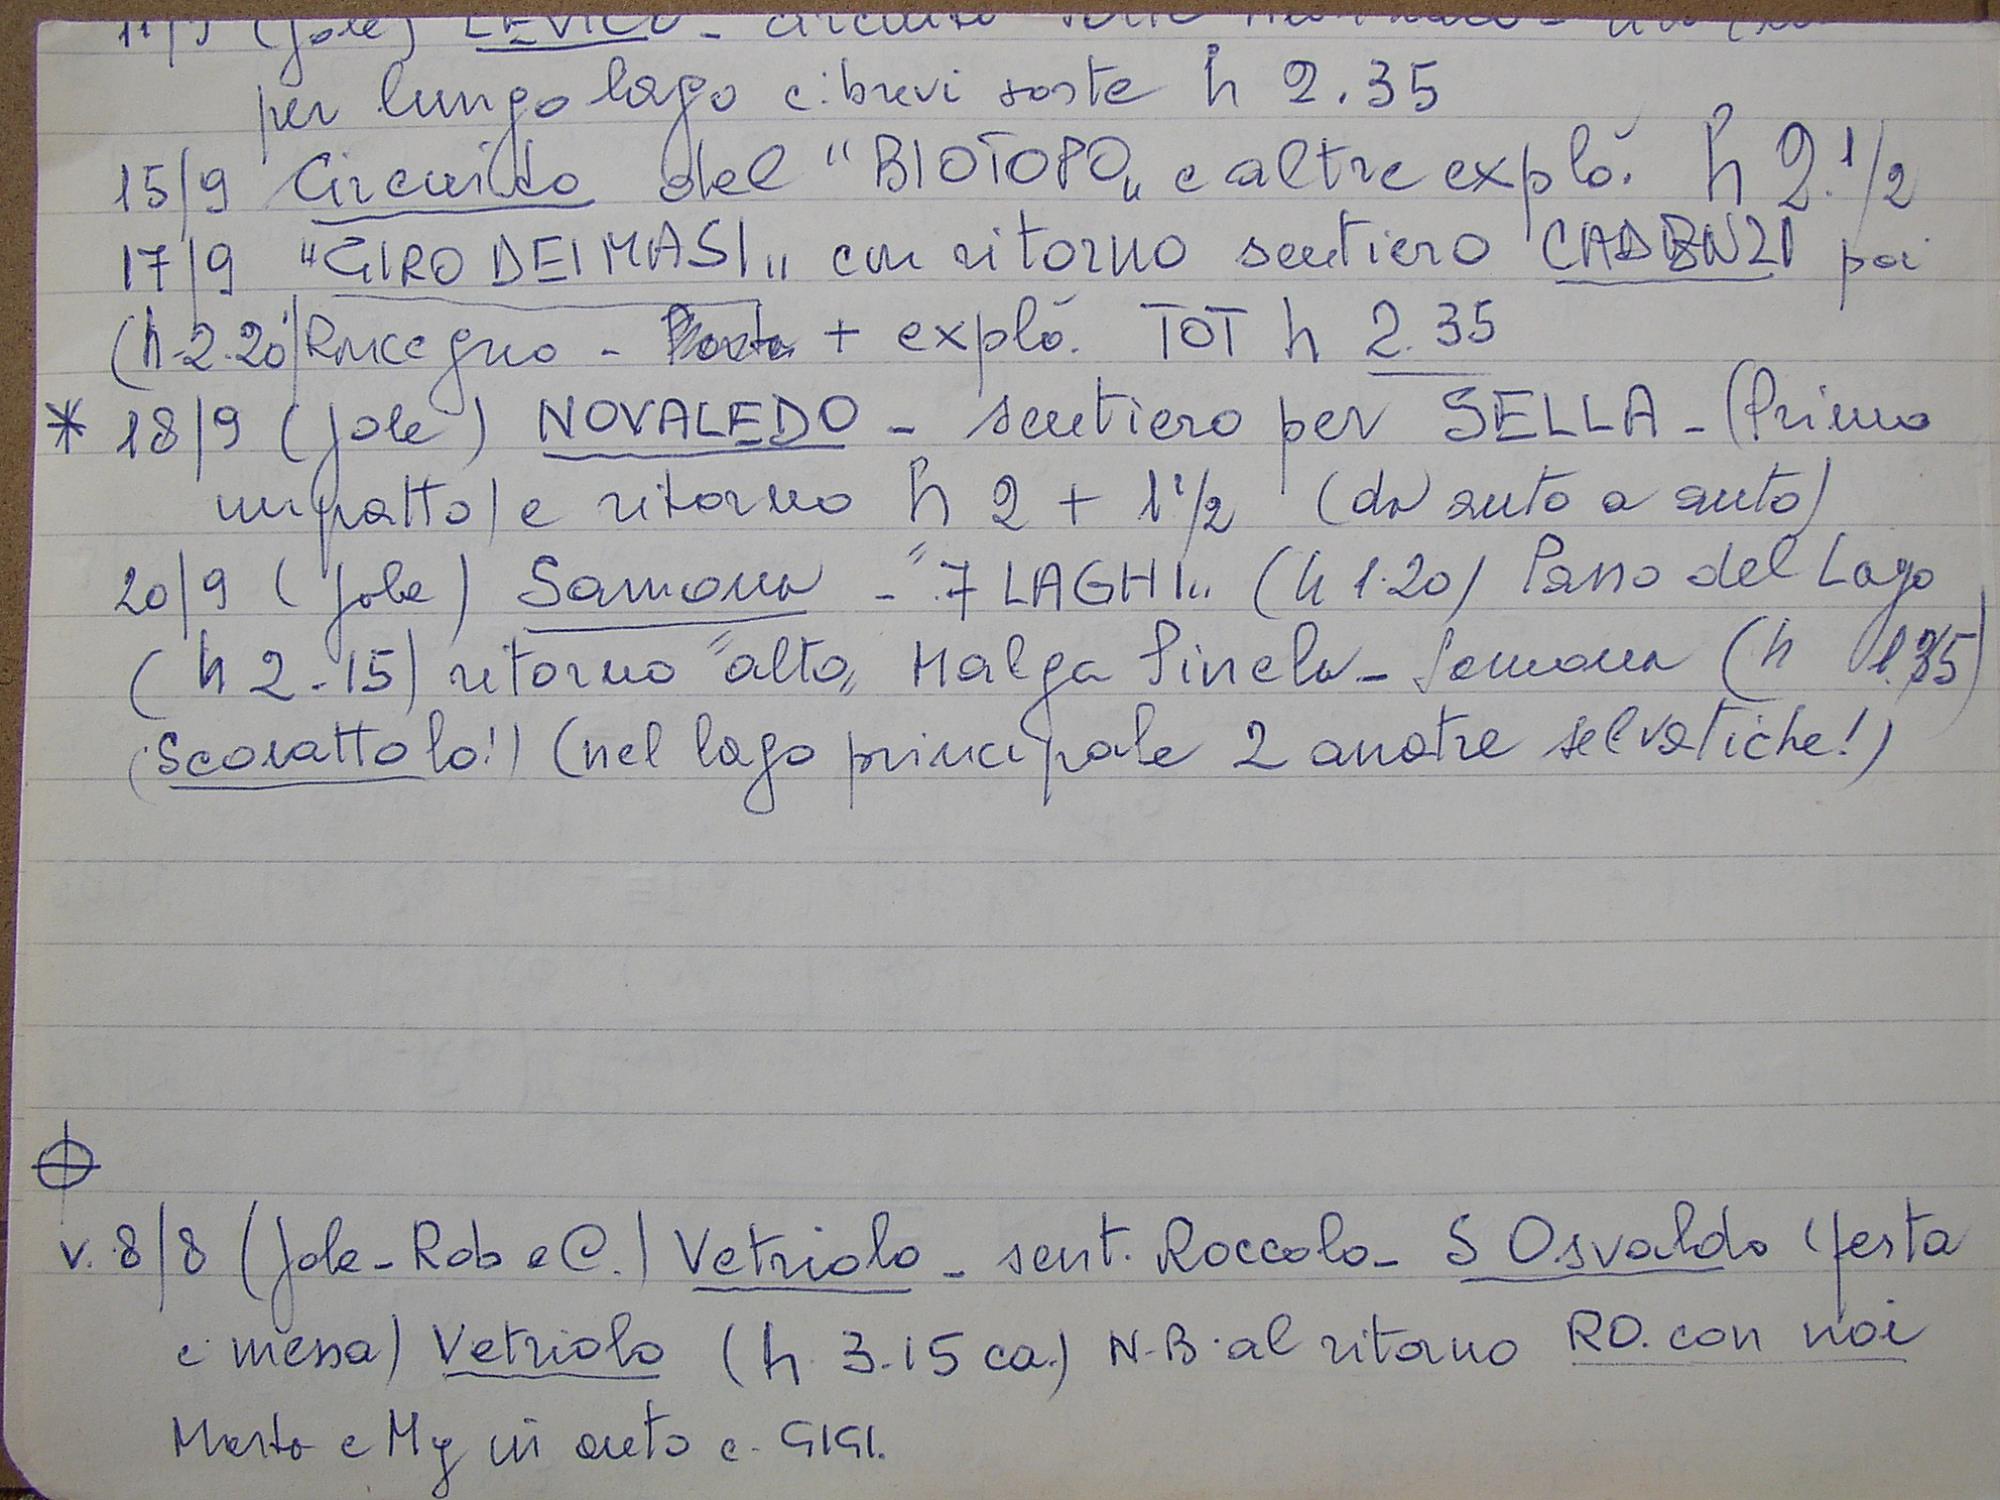 11/9 (Jole) LEVICO - circuito
per lungo lago c. brevi soste h 2.35
15/9 Circuito del "BIOTOPO" e altre explò. h 2.1/2
17/9 "GIRO DEI MASI" con ritorno sentiero CADENZI poi
(h 2.20) Roncegno - + explò. TOT h 2.35
* 18/9 (Jole) NOVALEDO - sentiero per SELLA - (Primo
impatto) e ritorno h 2 + 1 1/2 (da auto a auto)
20/9 (Jole) Samone - "7 LAGHI" (h 1.20) Passo del Lago
(h 2.15) ritorno "alto" Malga Sinela - Samone (h 1.35)
(Scorattolo!) (nel lago principale 2 anatre selvatiche!)
v. 8/8 (Jole - Rob e C.) Vetriolo - sent. Roccolo - S Osvaldo (festa
e messa) Vetriolo (h. 3.15 ca.) N.B. al ritorno RO. con noi
e My in auto c. GIGI.